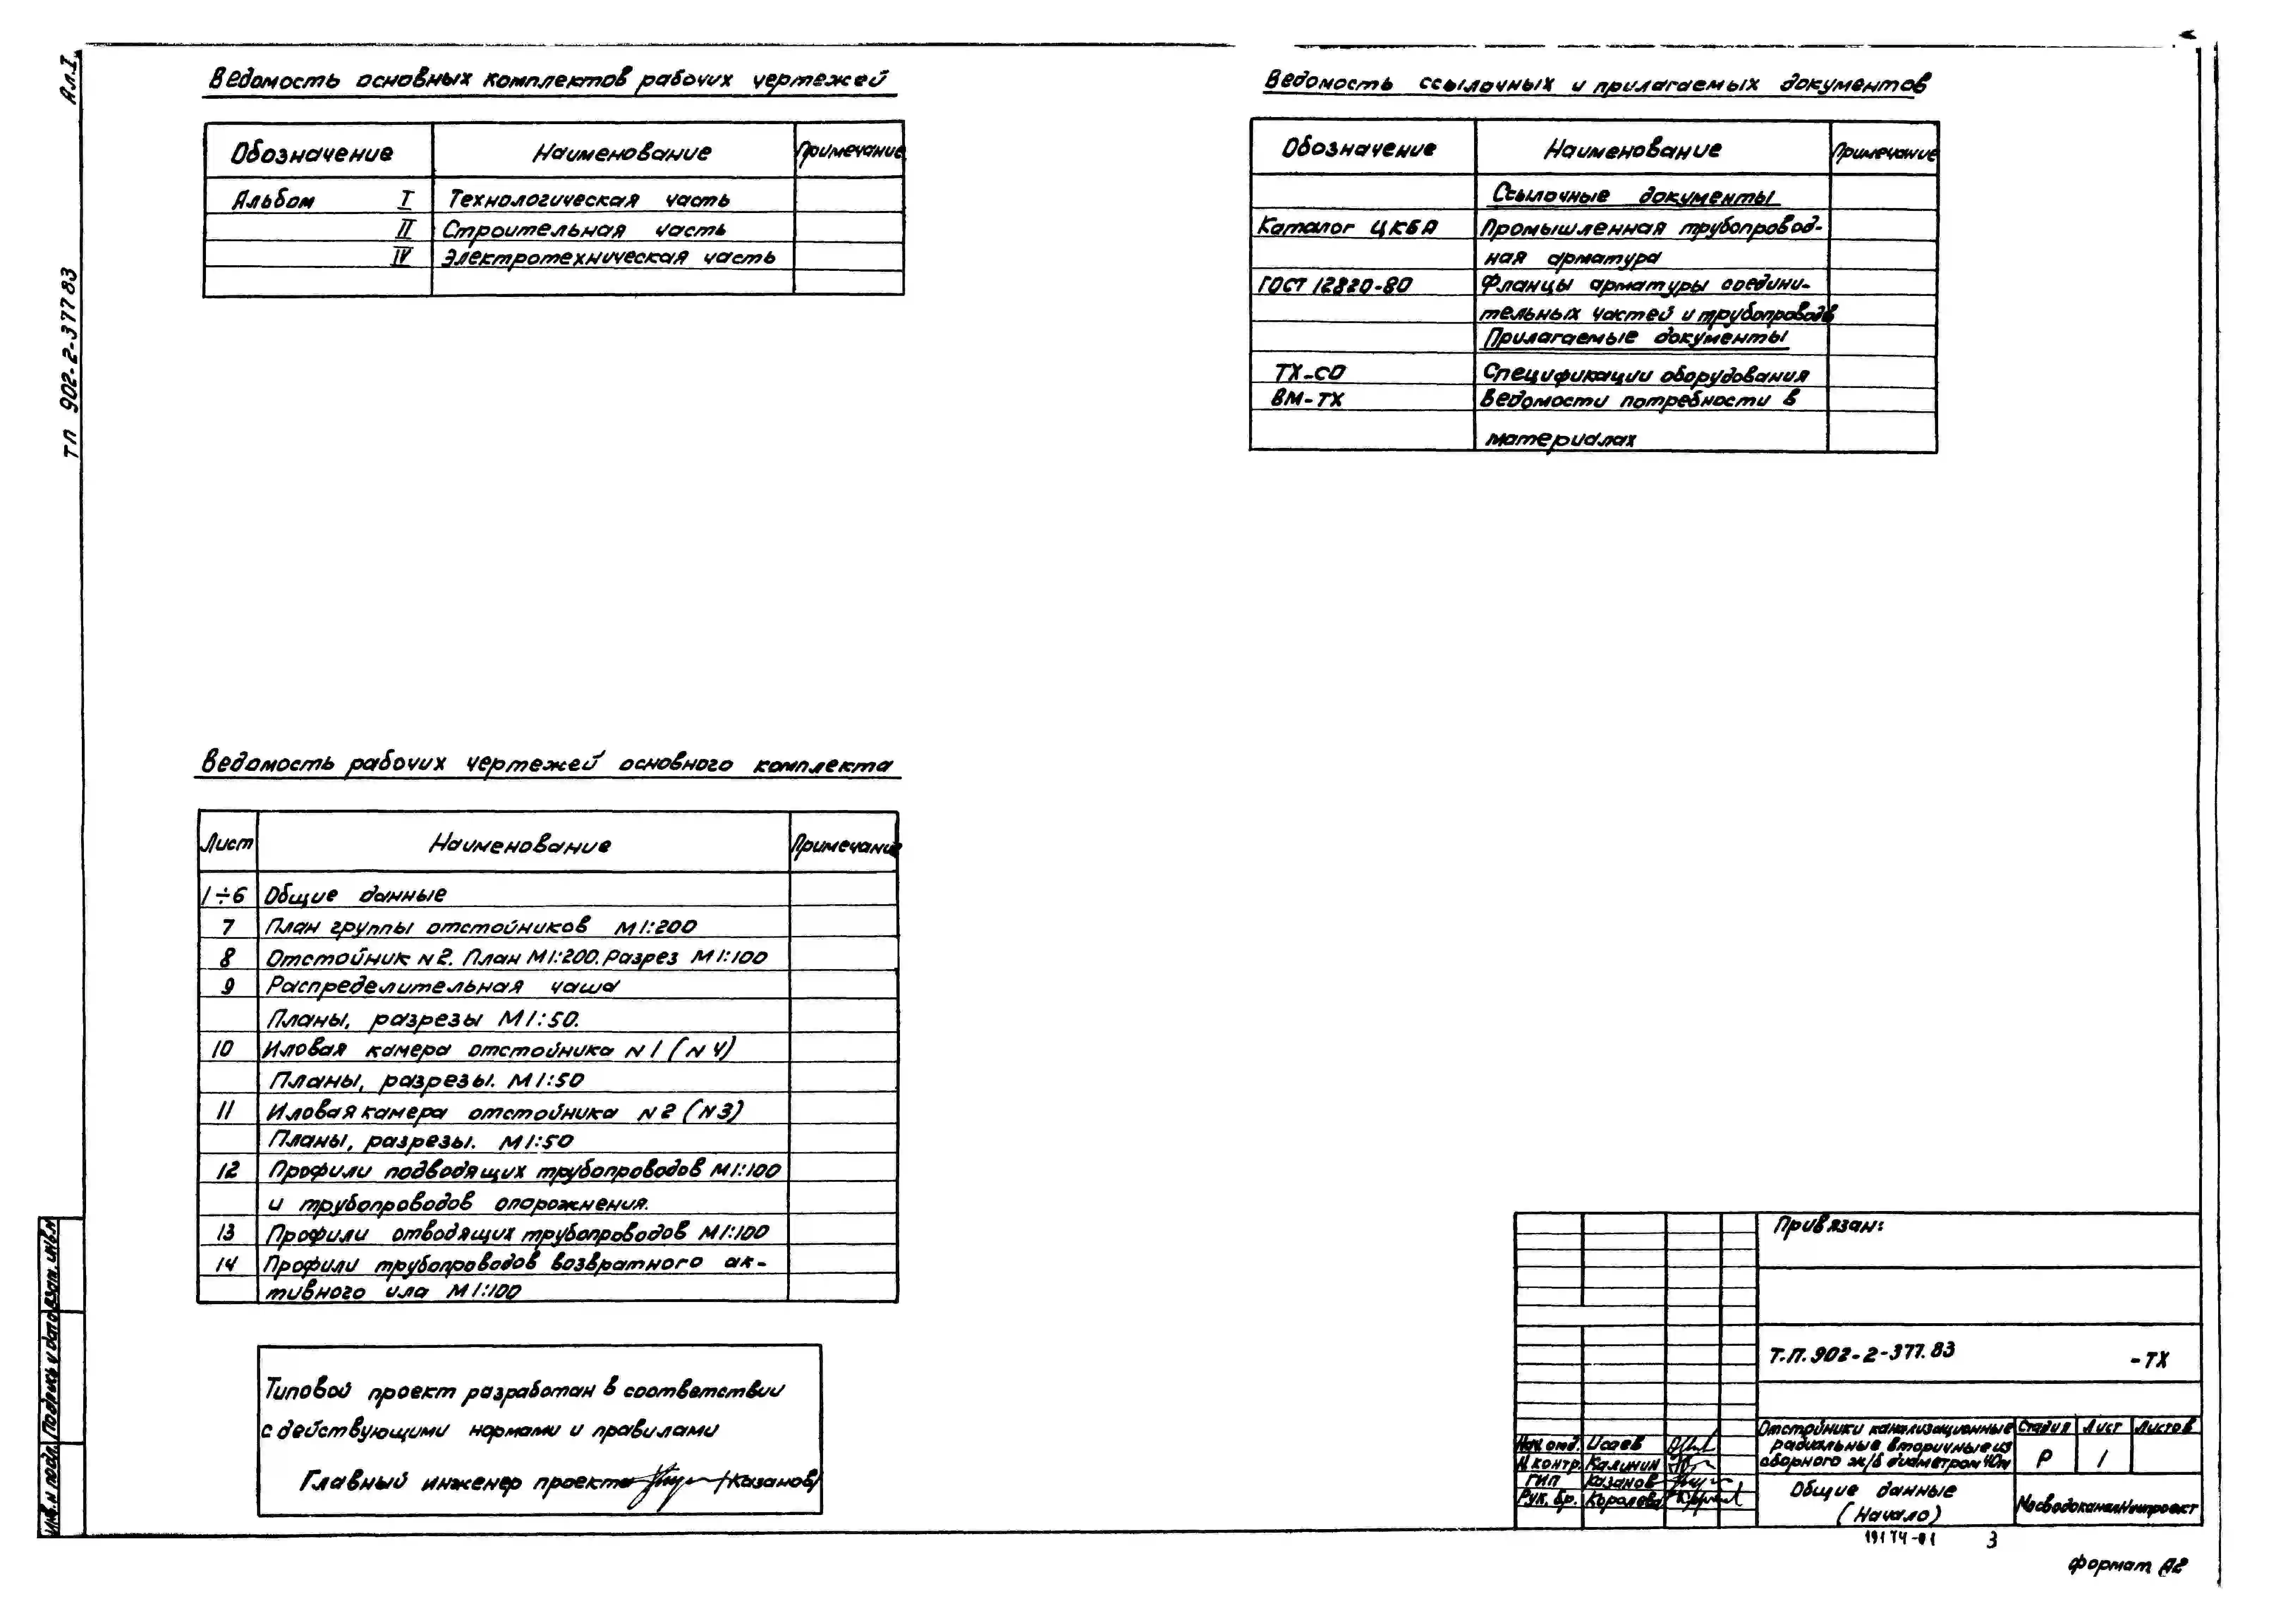 Ал.I
ТП 902-2-377 83
Ведомость основных комплектов рабочих чертежей
Обозначение Наименование Примечание
Альбом I Технологическая часть
II Строительная часть
IV Электротехническая часть
Ведомость ссылочных и прилагаемых документов
Обозначение Наименование Примечание
Ссылочные документы
Каталог ЦКБА Промышленная трубопровод-
ная арматура
ГОСТ 12820-80 Фланцы арматуры соедини-
тельных частей и трубопроводв
Прилагаемые документы
ТХ-СО Спецификации оборудования
ВМ-ТХ Ведомости потребности в
материалах
Ведомость рабочих чертежей основного комплекта
Лист Наименование Примечание
1÷6 Общие данные
7 План группы отстойников М1:200
8 Отстойник N2. План М1:200. Разрез М1:100
9 Распределительная чаша
Планы, разрезы М1:50.
10 Иловая камера отстойника N1 (N4)
Планы, разрезы. М1:50
11 Иловая камера отстойника N2 (N3)
Планы, разрезы. М1:50
12 Профили подводящих трубопроводов М1:100
и трубопроводов опорожнения.
13 Профили отводящих трубопроводов М1:100
14 Профили трубопроводов возвратного ак-
тивного ила М1:100
Типовой проект разработан в соответствии
с действующими нормами и правилами
Главный инженер проекта /Казанов/
Привязан:
Т.П. 902-2-377.83 -ТХ
Отстойники канализационные
радиальные вторичные из
сборного ж/б диаметром 40м
Стадия Лист Листов
Р 1
Нач. отд. Исаев
Н.контр. Калинин
ГИП Казанов
Рук. бр. Королева
Общие данные
(Начало)
МосводоканалНиипроект
Инв.N подл. Подпись и дата Взам. инв.N
19174-01 3
формат А2